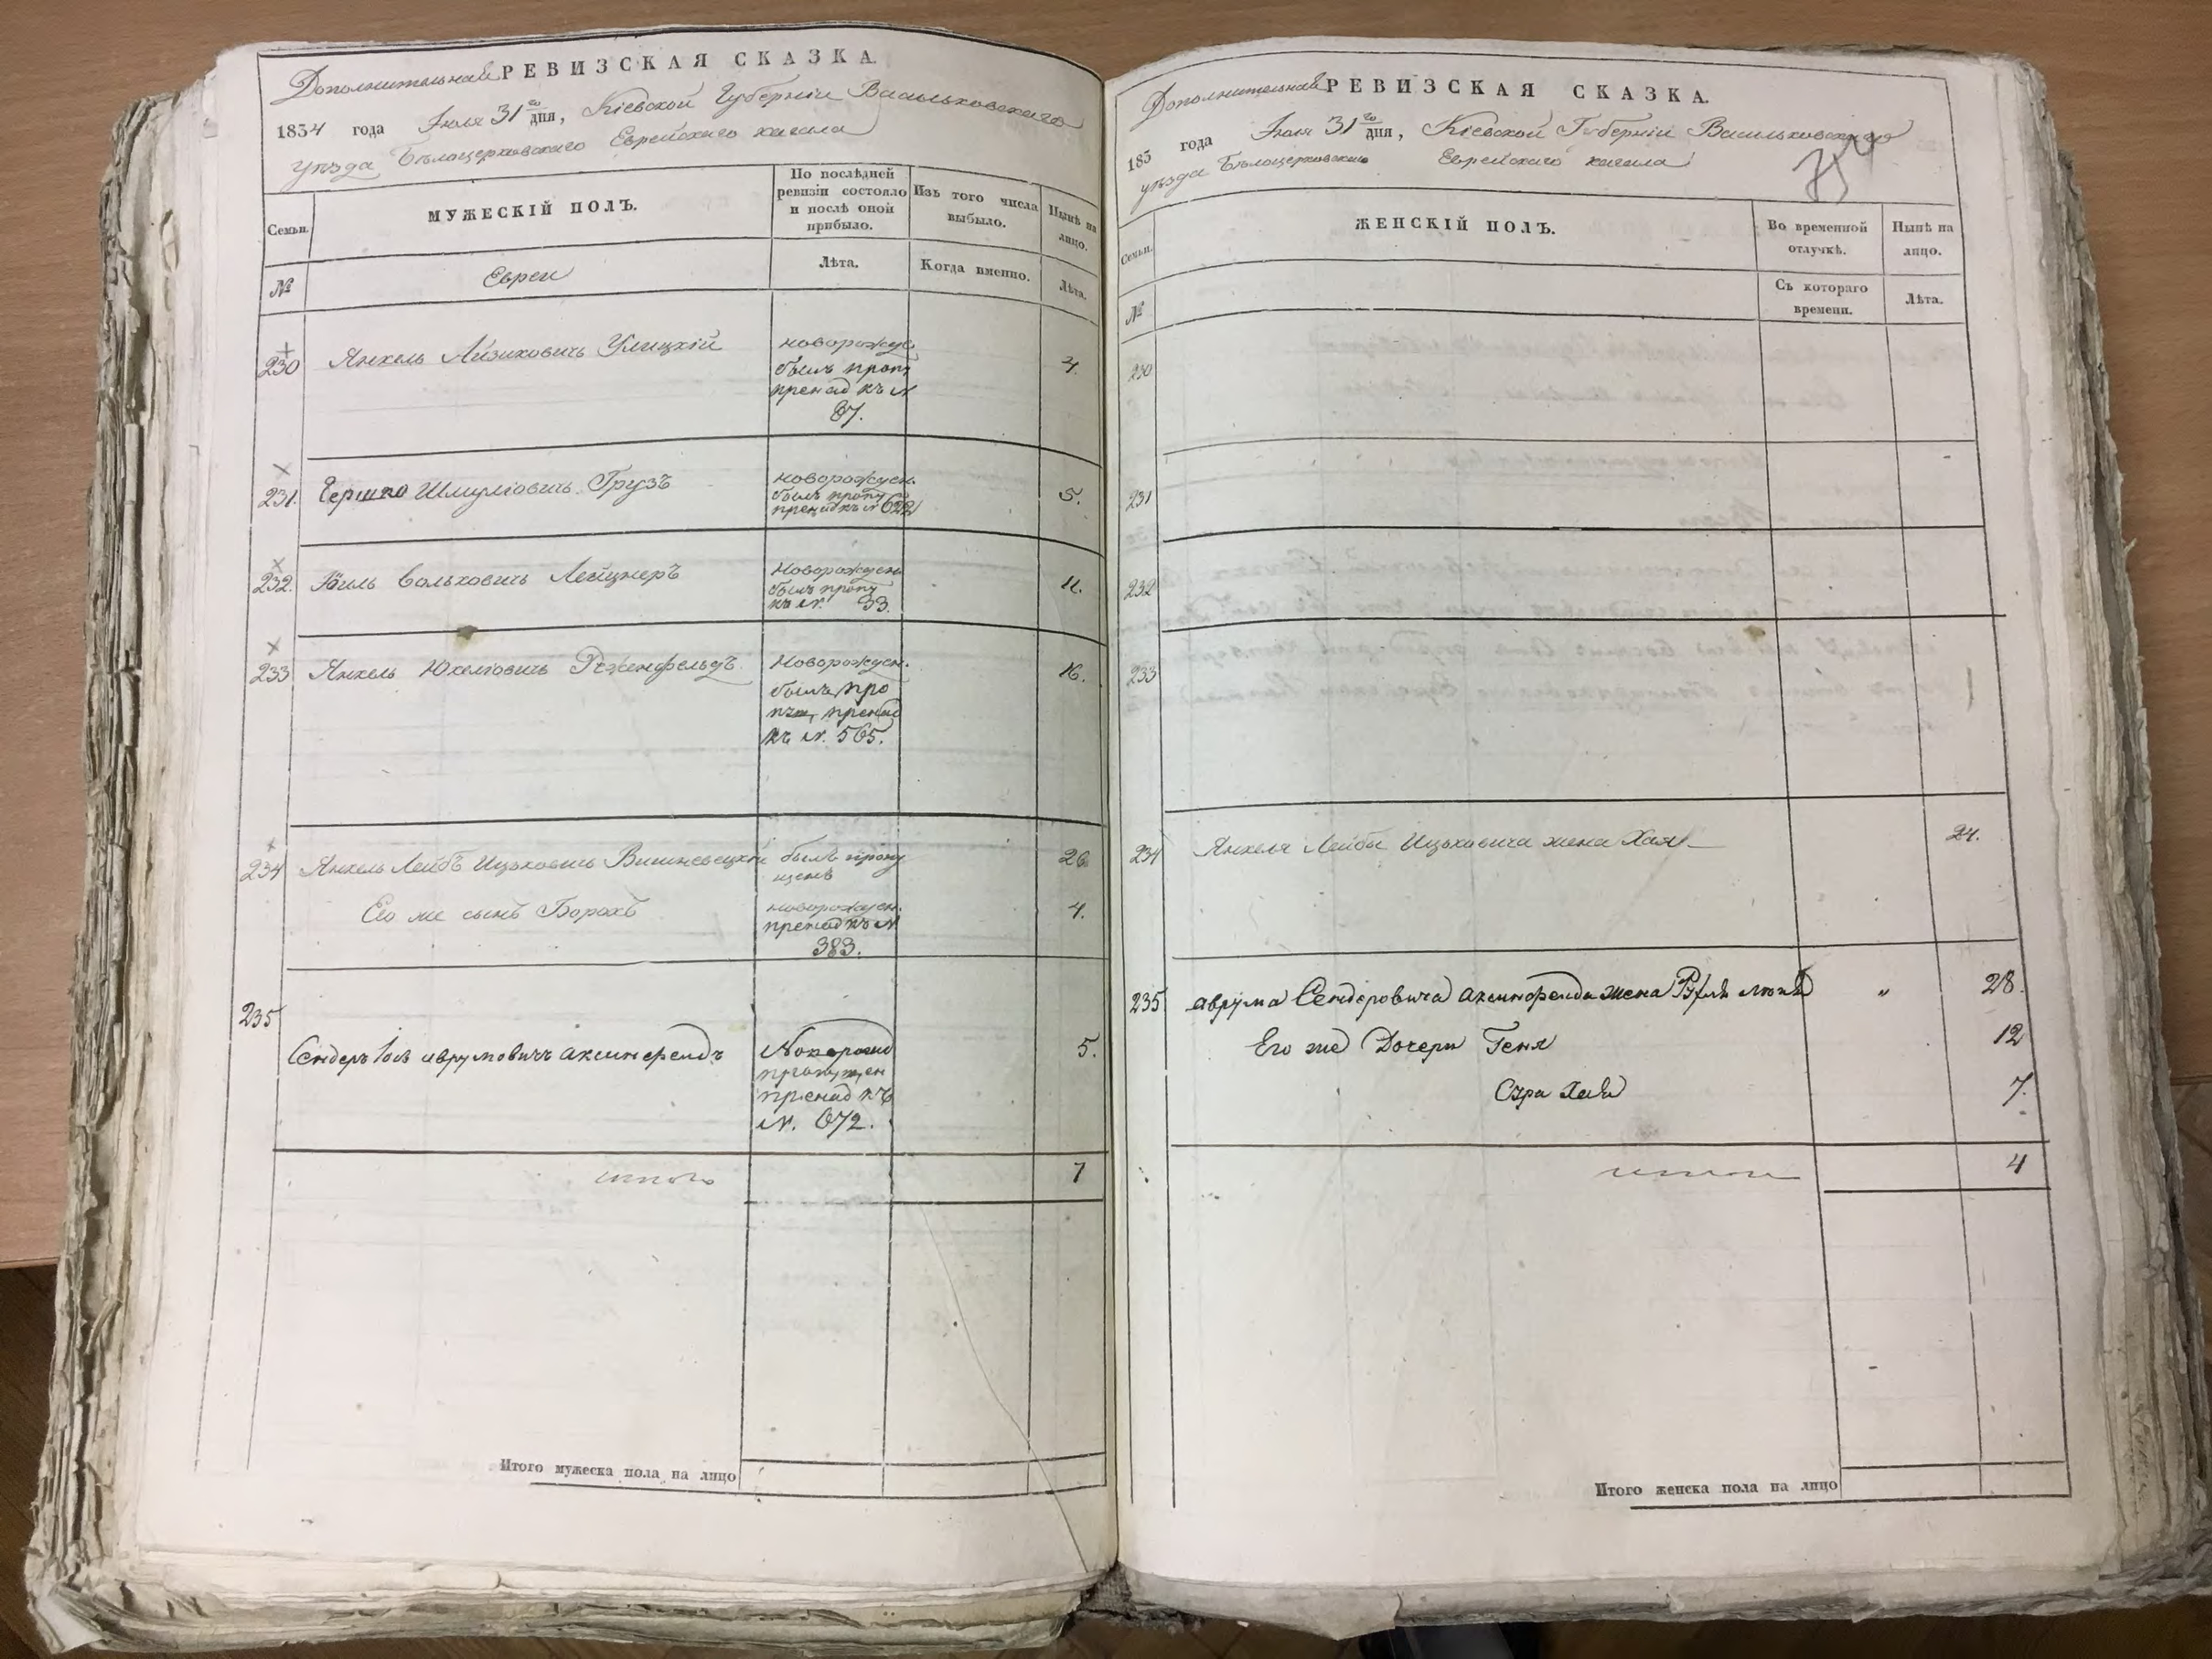 Дополнительная РЕВИЗСКАЯ СКАЗКА.
1834 года Июля 31го дня, Кіевской Губерніи Васильковскаго
уѣзда Бѣлоцерковскаго Еврейскаго кагала
Семьи.
МУЖЕСКІЙ ПОЛЪ.
По послѣдней ревизіи состояло и послѣ оной прибыло.
Изъ того числа выбыло.
Нынѣ на лицо.
№
Евреи
Лѣта.
Когда именно.
Лѣта.
230 Янкель Айзиковичъ Улицкій новорожде. 4.
былъ проп
пренад къ N
87.
231. Гершко Шмулiовичъ Грузъ новорожден. 5.
былъ проп
пренад къ N 622
232. Вольковичъ Лейцнеръ Новорожден 11.
былъ проп
къ N. 33.
233 Янкель Юхелiовичъ Новорожден. 16.
былъ про
пренад
къ N. 565.
234 Янкель Лейбъ Ицьковичъ Вишневецкій былъ пропу 26
щенъ
Его же сынъ Борохъ новорожден. 4.
пренад къ N
383.
235
Сендеръ Іось аврумовичъ аксинфелдъ Новорожд 5.
пропущен
пренад къ
N. 672.
итого 7
Итого мужеска пола на лицо
Дополнительная РЕВИЗСКАЯ СКАЗКА.
183 года Июля 31го дня, Кіевской Губерніи Васильковскаго
уѣзда Бѣлоцерковскаго Еврейскаго кагала
Семьи.
ЖЕНСКІЙ ПОЛЪ.
Во временной отлучкѣ.
Нынѣ на лицо.
№
Съ котораго времени.
Лѣта.
230
231
232
233
234 Янкеля Лейбы Ицьковича жена Хая 24.
235 аврума Сендеровича аксинфелда жена „ 28.
Его же Дочери Геня 12
Сура Хая 7.
итого 4
Итого женска пола на лицо